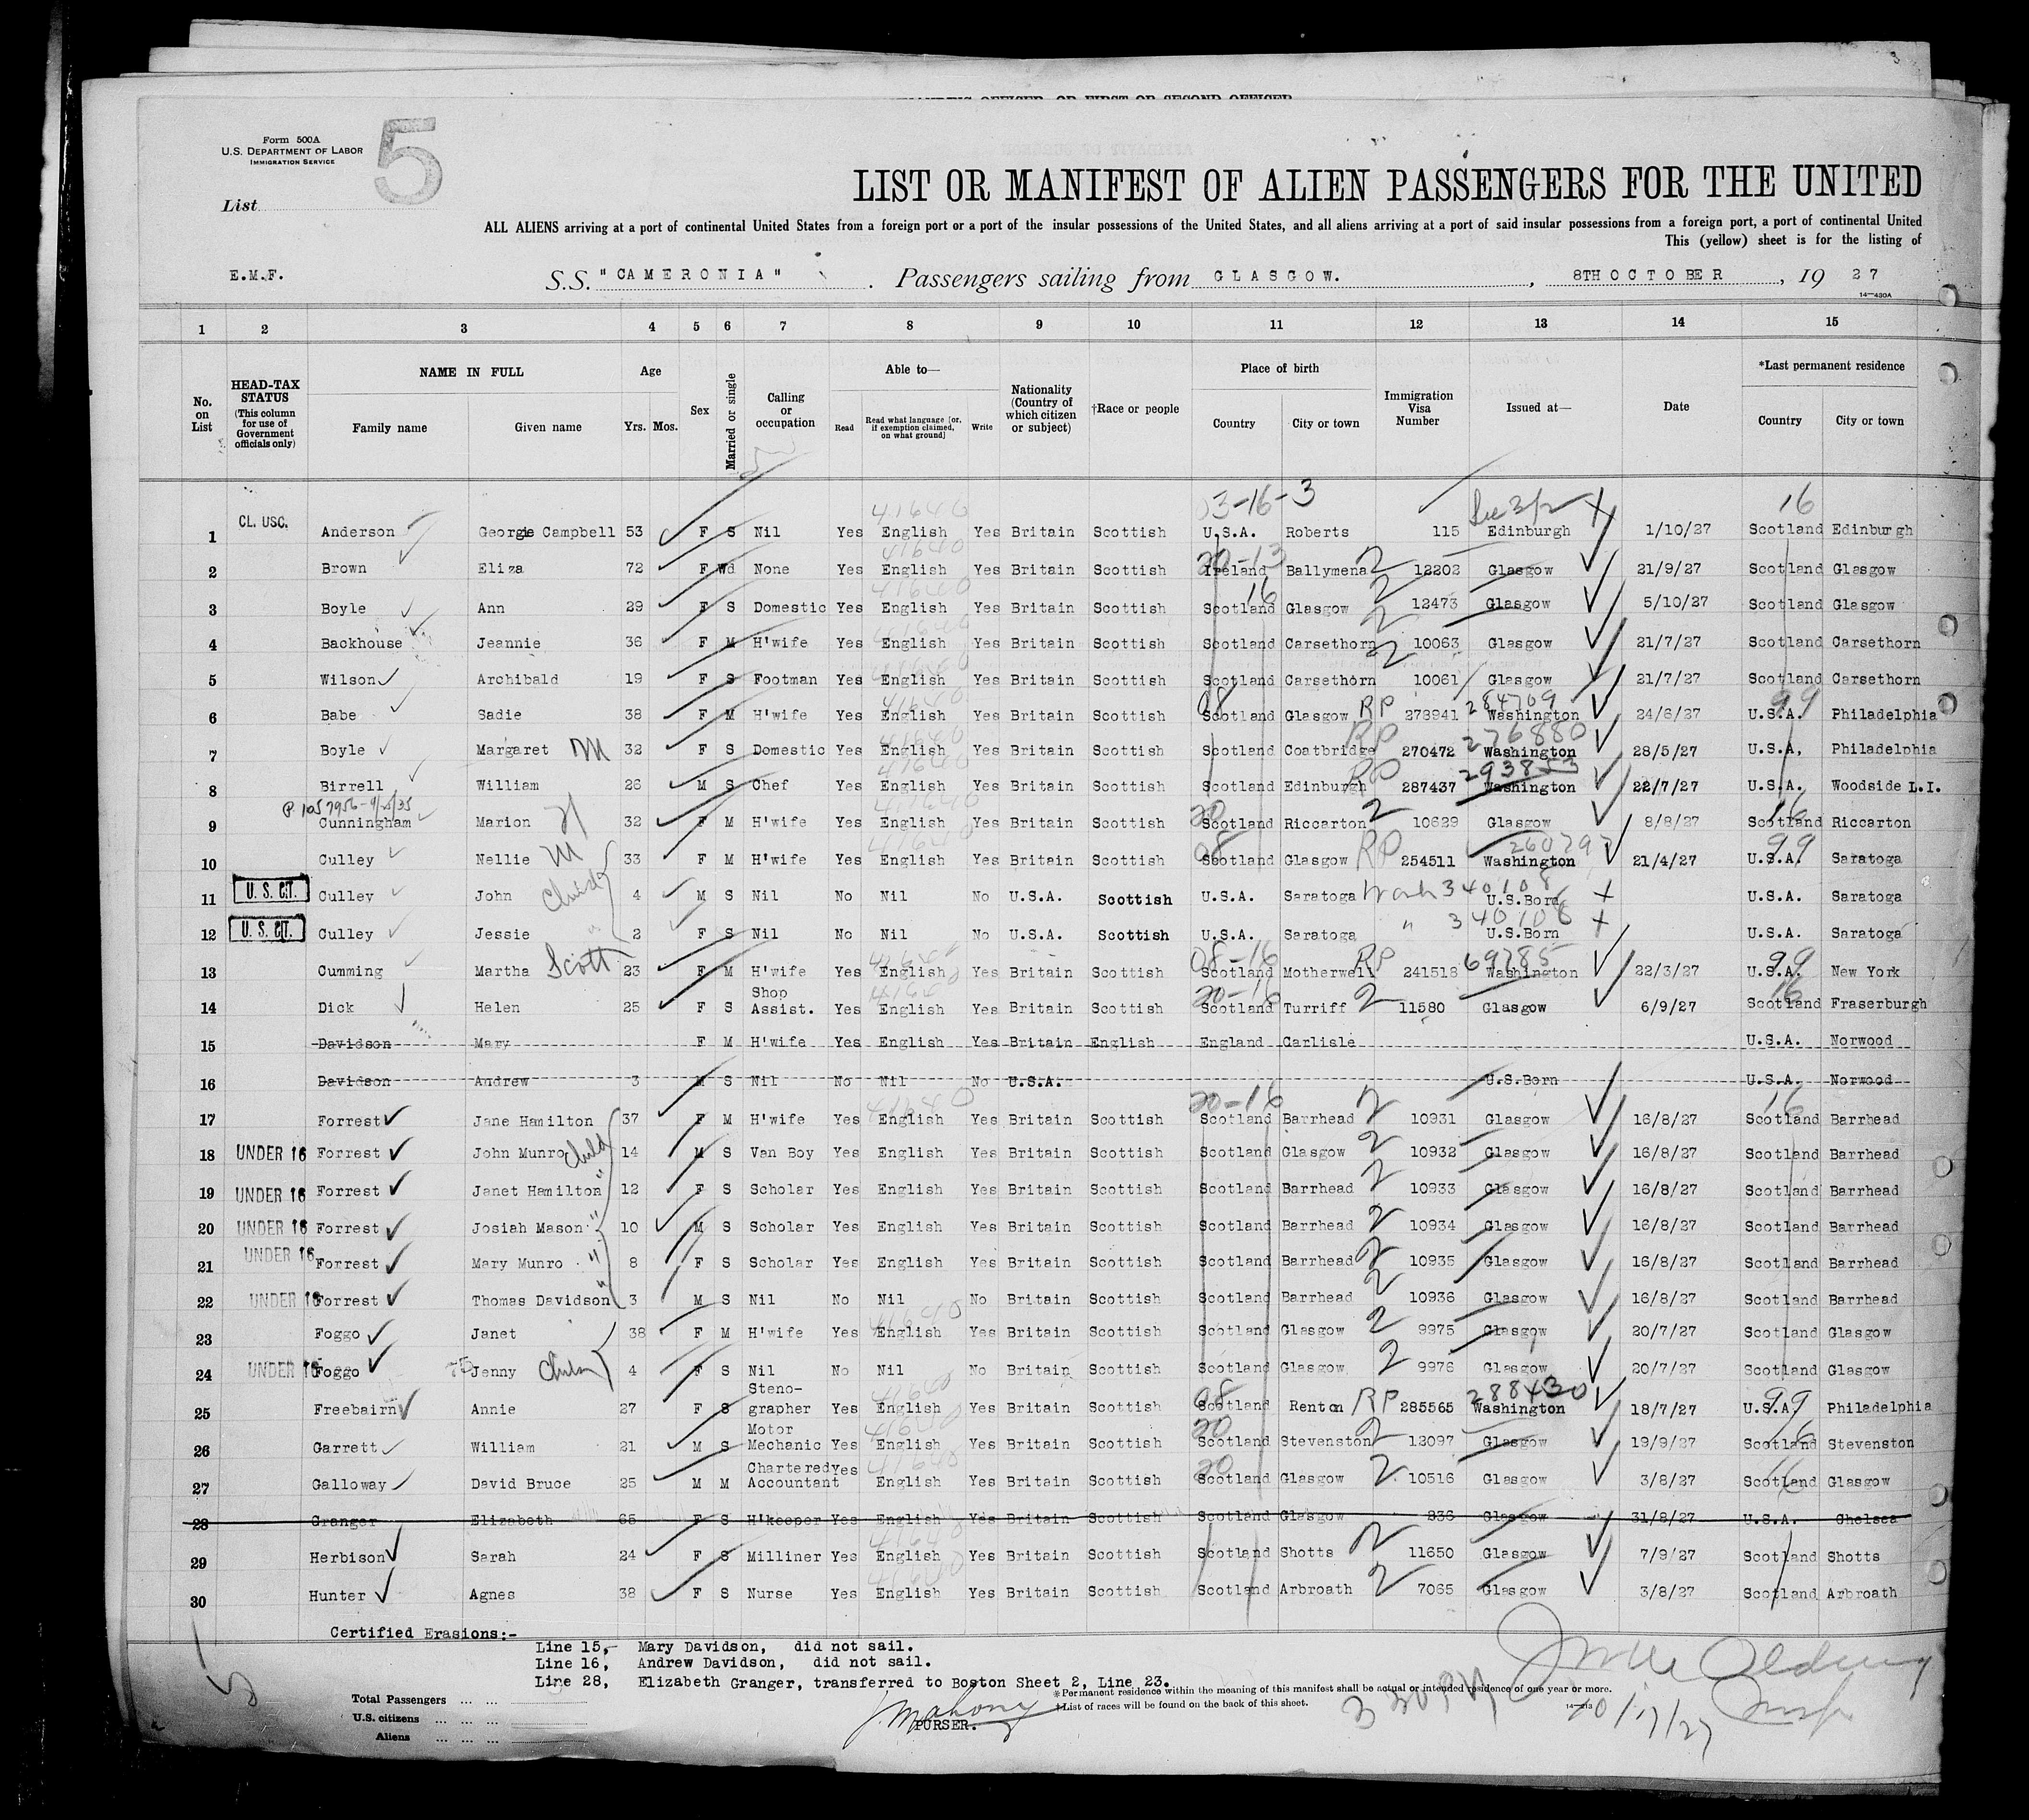 3
Form 500A
U.S. DEPARTMENT OF LABOR
IMMIGRATION SERVICE
5
List
LIST OR MANIFEST OF ALIEN PASSENGERS FOR THE UNITED
ALL ALIENS arriving at a port of continental United States from a foreign port or a port of the insular possessions of the United States, and all aliens arriving at a port of said insular possessions from a foreign port, a port of continental United
This (yellow) sheet is for the listing of
E.M.F. S.S. "CAMERONIA". Passengers sailing from GLASGOW., 8TH OCTOBER, 1927
14—430A
1 2 3 4 5 6 7 8 9 10 11 12 13 14 15
No. on List HEAD-TAX STATUS (This column for use of Government officials only) NAME IN FULL Family name Given name Age Yrs. Mos. Sex Married or single Calling or occupation Able to— Read Read what language [or, if exemption claimed, on what ground] Write Nationality (Country of which citizen or subject) †Race or people Place of birth Country City or town Immigration Visa Number Issued at— Date *Last permanent residence Country City or town
41640 03-16-3 16
1 CL. USC. Anderson Georgie Campbell 53 F S Nil Yes English Yes Britain Scottish U.S.A. Roberts 115 Edinburgh 1/10/27 Scotland Edinburgh
41640 20-13
2 Brown Eliza 72 F Wd None Yes English Yes Britain Scottish Ireland Ballymena 2 12202 Glasgow 21/9/27 Scotland Glasgow
41640 16
3 Boyle Ann 29 F S Domestic Yes English Yes Britain Scottish Scotland Glasgow 2 12473 Glasgow 5/10/27 Scotland Glasgow
4 Backhouse Jeannie 36 F M H'wife Yes English Yes Britain Scottish Scotland Carsethorn 2 10063 Glasgow 21/7/27 Scotland Carsethorn
5 Wilson Archibald 19 F S Footman Yes English Yes Britain Scottish Scotland Carsethorn 2 10061 Glasgow 21/7/27 Scotland Carsethorn
41640 08 284709 99
6 Babe Sadie 38 F M H'wife Yes English Yes Britain Scottish Scotland Glasgow RP 278941 Washington 24/6/27 U.S.A. Philadelphia
41640 276880
7 Boyle Margaret M 32 F S Domestic Yes English Yes Britain Scottish Scotland Coatbridge RP 270472 Washington 28/5/27 U.S.A, Philadelphia
41640 293853
8 Birrell William 26 M S Chef Yes English Yes Britain Scottish Scotland Edinburgh RP 287437 Washington 22/7/27 U.S.A. Woodside L.I.
41640 20 16
9 Cunningham Marion 32 F M H'wife Yes English Yes Britain Scottish Scotland Riccarton 2 10629 Glasgow 8/8/27 Scotland Riccarton
08 99
10 Culley Nellie M 33 F M H'wife Yes English Yes Britain Scottish Scotland Glasgow RP 254511 Washington 21/4/27 U.S.A. Saratoga
11 U. S. CIT. Culley John Child 4 M S Nil No Nil No U.S.A. Scottish U.S.A. Saratoga Wash 340108 U.S.Born U.S.A. Saratoga
12 U. S. CIT. Culley Jessie " 2 F S Nil No Nil No U.S.A. Scottish U.S.A. Saratoga " 340108 U.S.Born U.S.A. Saratoga
08-16 69785 99
13 Cumming Martha Scott 23 F M H'wife Yes English Yes Britain Scottish Scotland Motherwell RP 241518 Washington 22/3/27 U.S.A. New York
20-16 16
14 Dick Helen 25 F S Shop Assist. Yes English Yes Britain Scottish Scotland Turriff 2 11580 Glasgow 6/9/27 Scotland Fraserburgh
15 Davidson Mary F M H'wife Yes English Yes Britain English England Carlisle U.S.A. Norwood
16 Davidson Andrew 3 M S Nil No Nil No U.S.A. U.S.Born U.S.A. Norwood
41640 20-16 16
17 Forrest Jane Hamilton 37 F M H'wife Yes English Yes Britain Scottish Scotland Barrhead 2 10931 Glasgow 16/8/27 Scotland Barrhead
18 UNDER 16 Forrest John Munro Child 14 M S Van Boy Yes English Yes Britain Scottish Scotland Glasgow 2 10932 Glasgow 16/8/27 Scotland Barrhead
19 UNDER 16 Forrest Janet Hamilton " 12 F S Scholar Yes English Yes Britain Scottish Scotland Barrhead 2 10933 Glasgow 16/8/27 Scotland Barrhead
20 UNDER 16 Forrest Josiah Mason " 10 M S Scholar Yes English Yes Britain Scottish Scotland Barrhead 2 10934 Glasgow 16/8/27 Scotland Barrhead
21 UNDER 16 Forrest Mary Munro " 8 F S Scholar Yes English Yes Britain Scottish Scotland Barrhead 2 10935 Glasgow 16/8/27 Scotland Barrhead
22 UNDER 16 Forrest Thomas Davidson " 3 M S Nil No Nil No Britain Scottish Scotland Barrhead 2 10936 Glasgow 16/8/27 Scotland Barrhead
41640
23 Foggo Janet 38 F M H'wife Yes English Yes Britain Scottish Scotland Glasgow 2 9975 Glasgow 20/7/27 Scotland Glasgow
24 UNDER 16 Foggo Jenny 4 F S Nil No Nil No Britain Scottish Scotland Glasgow 2 9976 Glasgow 20/7/27 Scotland Glasgow
41640 08 288430 99
25 Freebairn Annie 27 F S Steno-grapher Yes English Yes Britain Scottish Scotland Renton RP 285565 Washington 18/7/27 U.S.A. Philadelphia
41640 20 16
26 Garrett William 21 M S Motor Mechanic Yes English Yes Britain Scottish Scotland Stevenston 2 12097 Glasgow 19/9/27 Scotland Stevenston
41640 20 16
27 Galloway David Bruce 25 M M Chartered Accountant Yes English Yes Britain Scottish Scotland Glasgow 2 10516 Glasgow 3/8/27 Scotland Glasgow
28 Granger Elizabeth 65 F S H'keeper Yes English Yes Britain Scottish Scotland Glasgow 836 Glasgow 31/8/27 U.S.A. Chelsea
29 Herbison Sarah 24 F S Milliner Yes English Yes Britain Scottish Scotland Shotts 2 11650 Glasgow 7/9/27 Scotland Shotts
30 Hunter Agnes 38 F S Nurse Yes English Yes Britain Scottish Scotland Arbroath 2 7065 Glasgow 3/8/27 Scotland Arbroath
Certified Erasions:-
Line 15,- Mary Davidson, did not sail.
Line 16, Andrew Davidson, did not sail.
Line 28, Elizabeth Granger, transferred to Boston Sheet 2, Line 23.
Total Passengers
U.S. citizens
Aliens
J. Mahony
PURSER.
*Permanent residence within the meaning of this manifest shall be actual or intended residence of one year or more.
†List of races will be found on the back of this sheet.
10/17/27